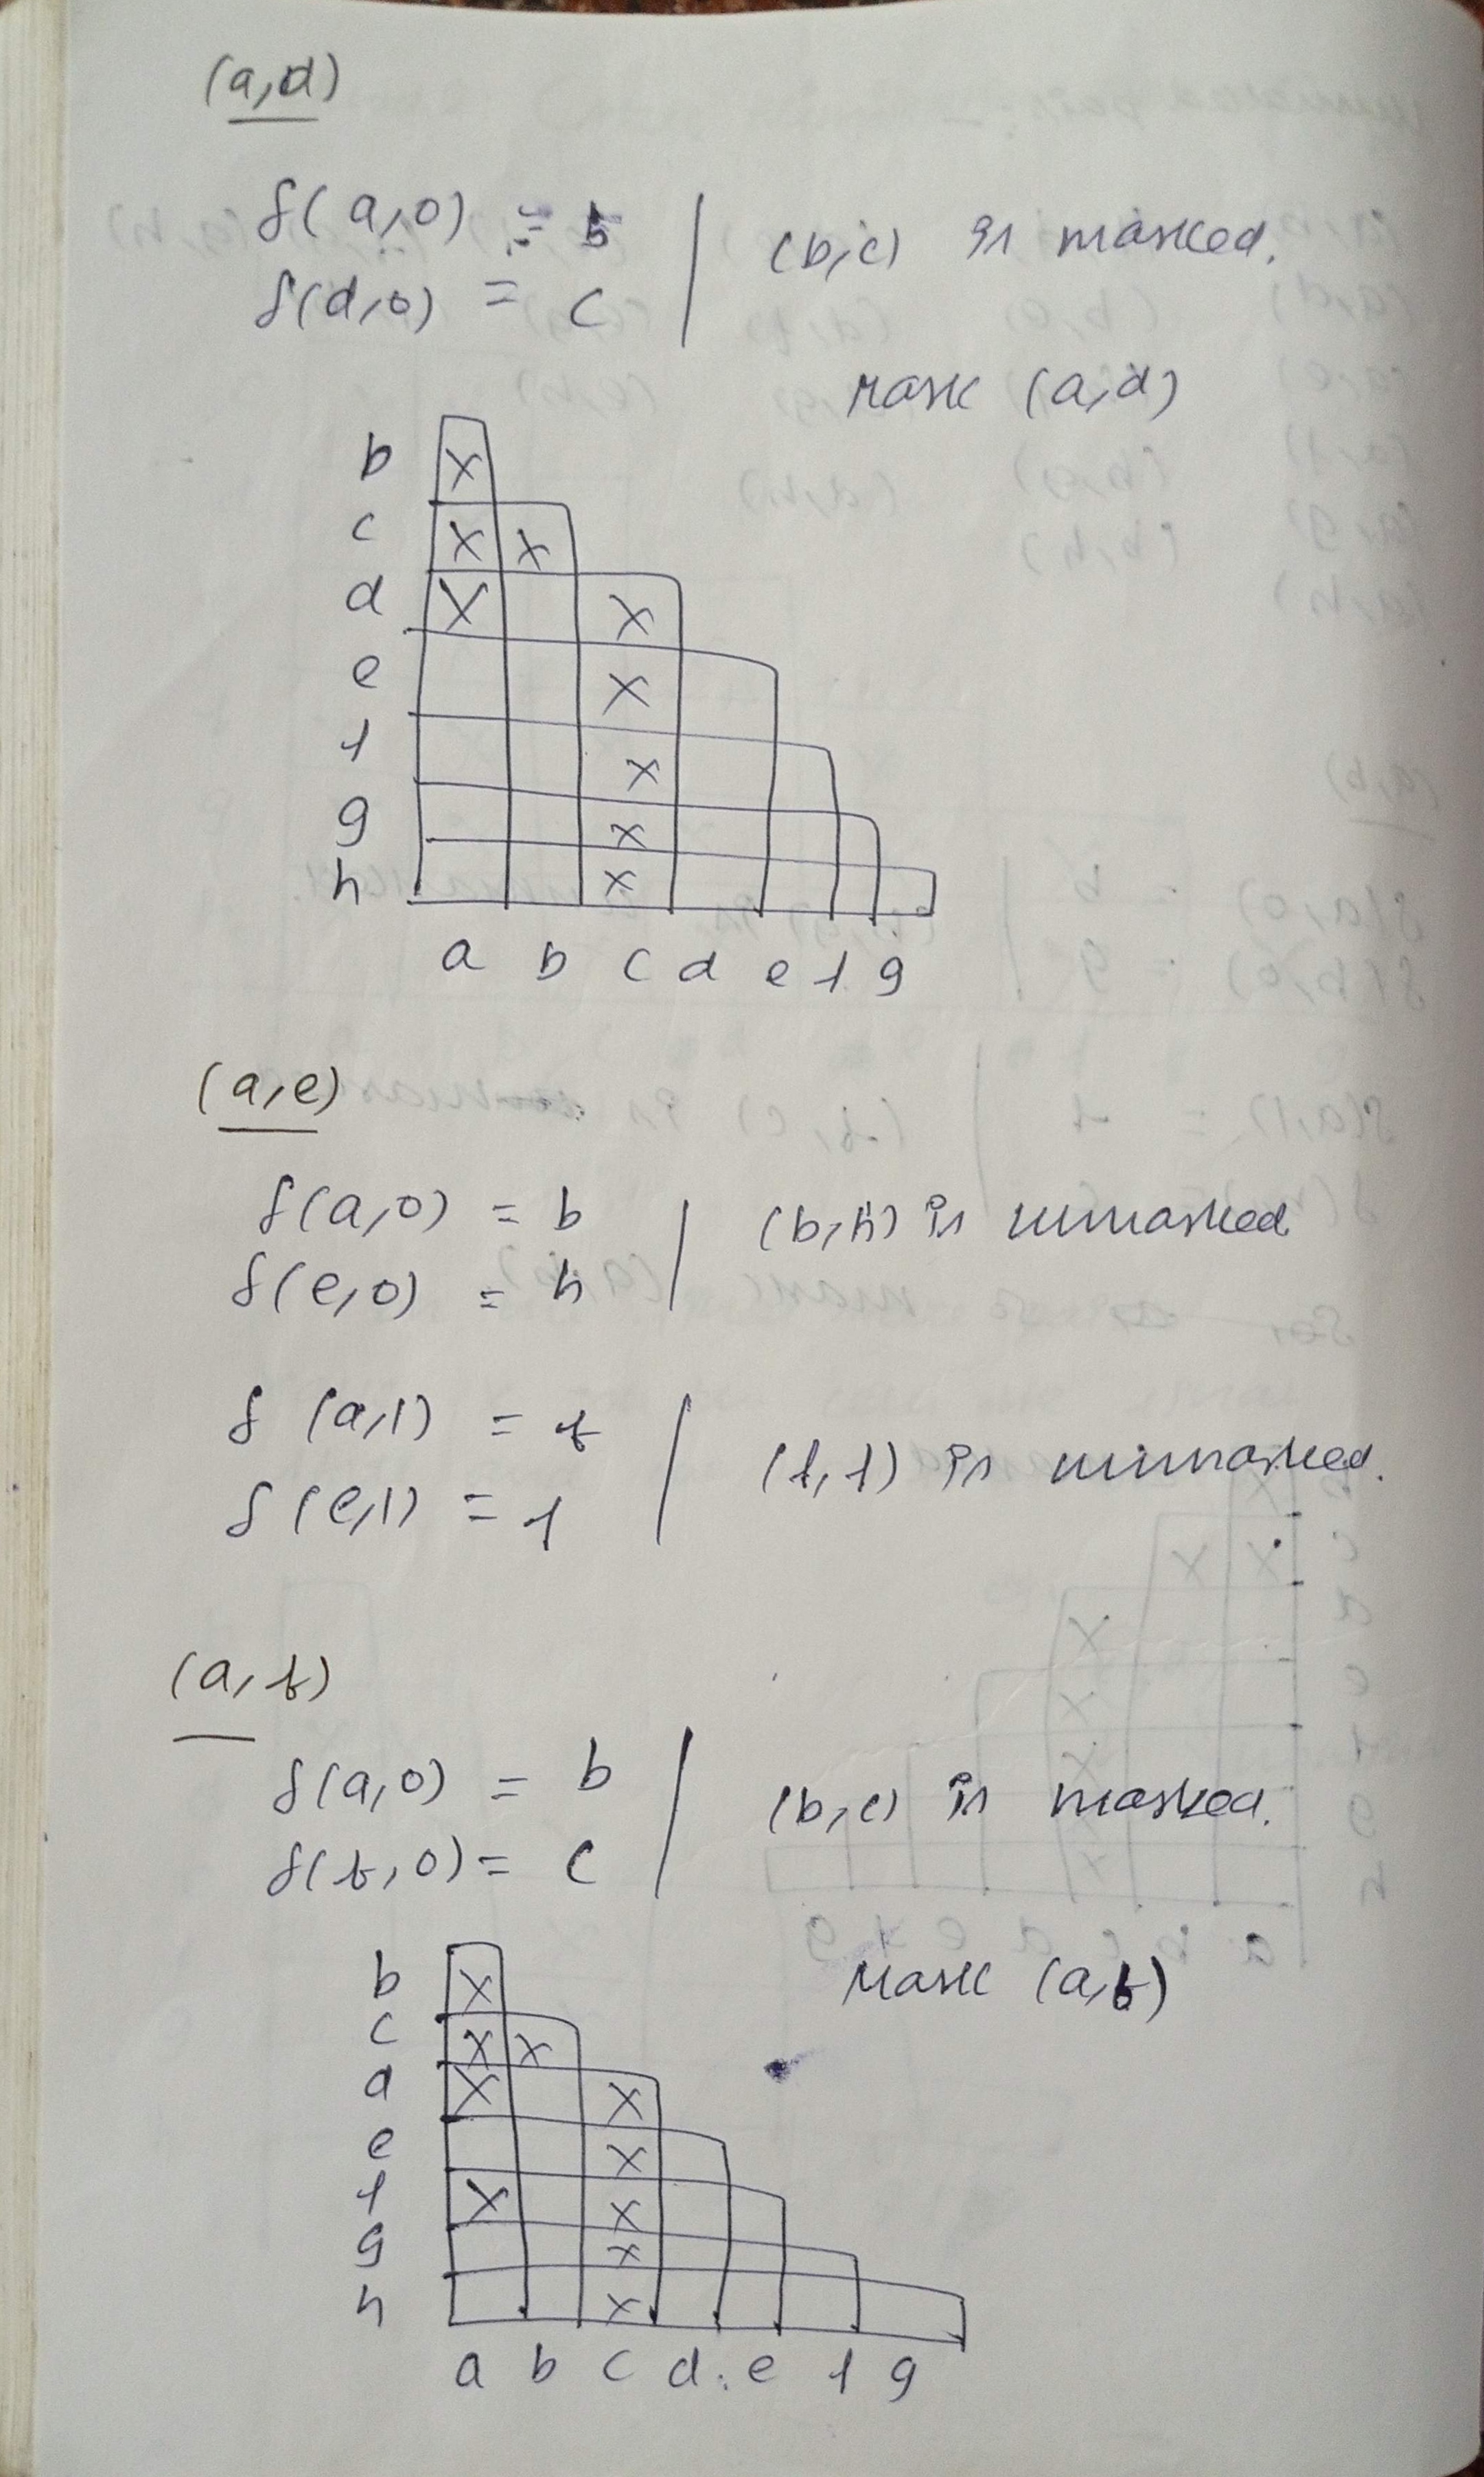 (a,d)
δ(a,0) = b | (b,c) is marked.
δ(d,0) = c
Mark (a,d)
b X
c X X
d X X
e X
f X
g X
h X
a b c d e f g
(a,e)
δ(a,0) = b | (b,h) is unmarked
δ(e,0) = h
δ(a,1) = f | (f,f) is unmarked.
δ(e,1) = f
(a,f)
δ(a,0) = b | (b,c) is marked.
δ(f,0) = c
Mark (a,f)
b X
c X X
d X X
e X
f X X
g X
h X
a b c d e f g